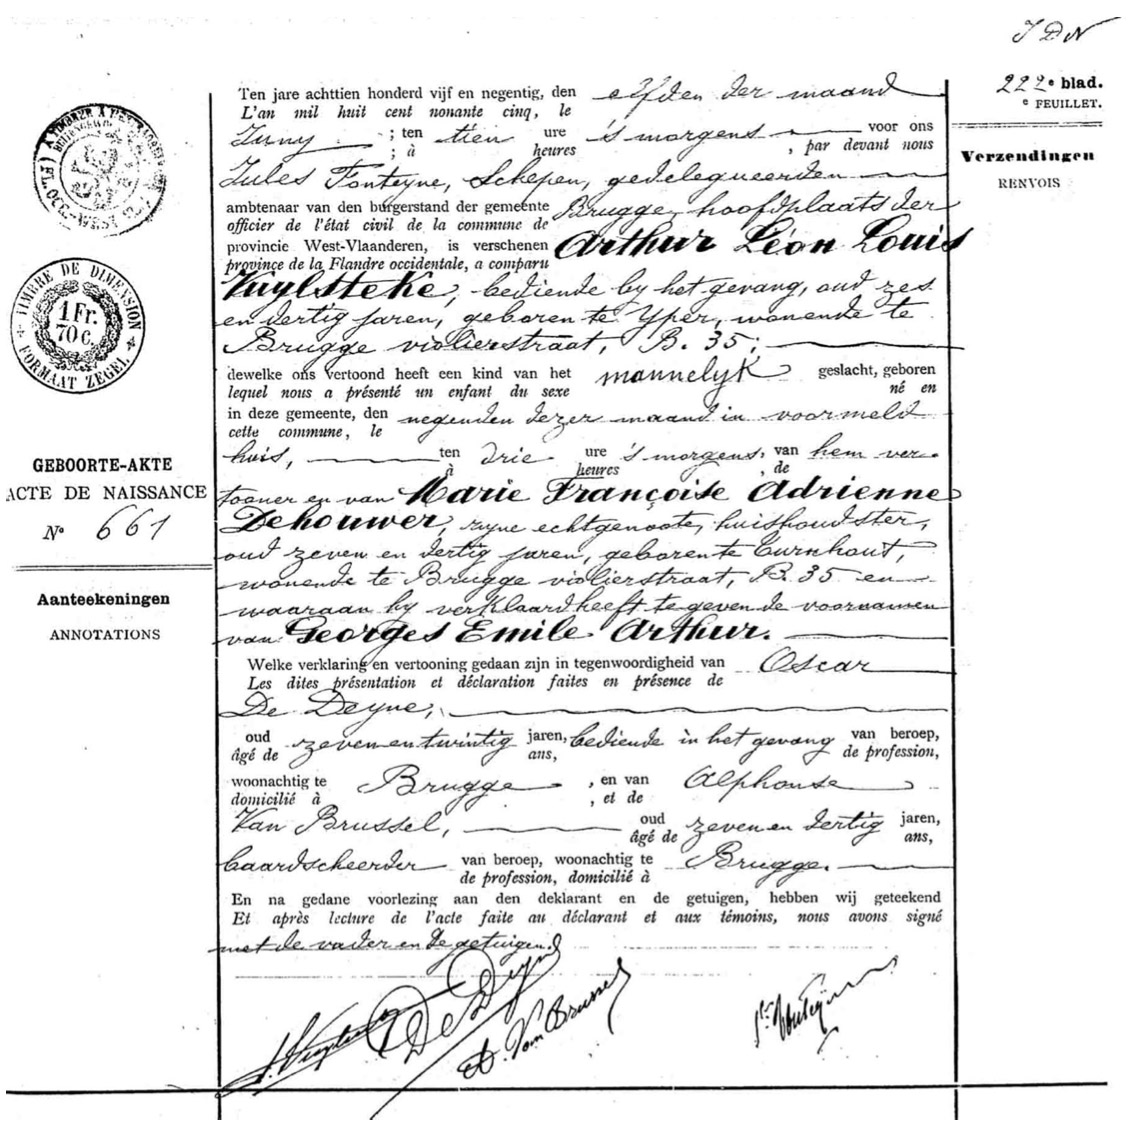 J D N
222e blad.
e FEUILLET.
Verzendingen
RENVOIS
TIMBRE DE DIMENSION
1 Fr.
70 c.
FORMAAT ZEGEL.
GEBOORTE-AKTE
ACTE DE NAISSANCE
No 661
Aanteekeningen
ANNOTATIONS
Ten jare achttien honderd vijf en negentig, den elfden der maand
L'an mil huit cent nonante cinq, le
Juny ; ten tien ure 's morgens voor ons
; à heures , par devant nous
Jules Fonteyne, Schepen, gedelegueerden
ambtenaar van den burgerstand der gemeente Brugge, hoofdplaats der
officier de l'état civil de la commune de
provincie West-Vlaanderen, is verschenen Arthur Léon Louis
province de la Flandre occidentale, a comparu
Vuylsteke, bediende by het gevang, oud zes
en dertig jaren, geboren te Yper, wonende te
Brugge violierstraat, B. 35;
dewelke ons vertoond heeft een kind van het mannelyk geslacht, geboren
lequel nous a présenté un enfant du sexe né en
in deze gemeente, den negenden dezer maand in voormeld
cette commune, le
huis, ten drie ure 's morgens, van hem ver-
à heures , de
tooner en van Marie Françoise Adrienne
Dehouwer, zyne echtgenoote, huishoudster,
oud zeven en dertig jaren, geboren te Turnhout,
wonende te Brugge violierstraat, B. 35 en
waaraan hy verklaard heeft te geven de voornamen
van Georges Emile Arthur.
Welke verklaring en vertooning gedaan zijn in tegenwoordigheid van Oscar
Les dites présentation et déclaration faites en présence de
De Deyne,
oud zeven en twintig jaren, bediende in het gevang van beroep,
âgé de ans, de profession,
woonachtig te Brugge , en van Alphonse
domicilié à , et de
Van Brussel, oud zeven en dertig jaren,
âgé de ans,
baardscheerder van beroep, woonachtig te Brugge.
de profession, domicilié à
En na gedane voorlezing aan den deklarant en de getuigen, hebben wij geteekend
Et après lecture de l'acte faite au déclarant et aux témoins, nous avons signé
met de vader en de getuigen.
A. Vuylsteke
O De Deyne
A. Van Brussel
Js. Fonteyne